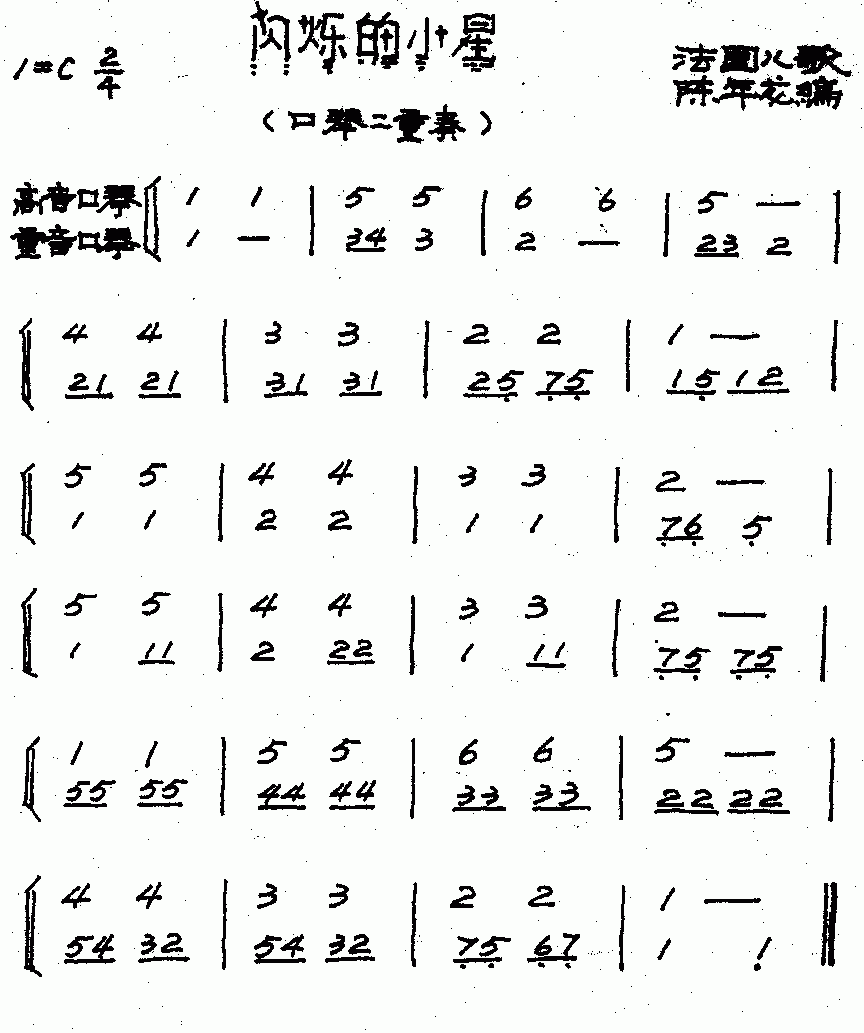 闪烁的小星
1=C 2/4
法国儿歌
陈年花编
（口琴二重奏）
高音口琴 1 1 | 5 5 | 6 6 | 5 — |
重音口琴 1 — | 34 3 | 2 — | 23 2 |
4 4 | 3 3 | 2 2 | 1 — |
21 21 | 31 31 | 25̣ 7̣5̣ | 15̣ 12 |
5 5 | 4 4 | 3 3 | 2 — |
1 1 | 2 2 | 1 1 | 7̣6̣ 5̣ |
5 5 | 4 4 | 3 3 | 2 — |
1 11 | 2 22 | 1 11 | 7̣5̣ 7̣5̣ |
1 1 | 5 5 | 6 6 | 5 — |
55 55 | 44 44 | 33 33 | 22 22 |
4 4 | 3 3 | 2 2 | 1 — ||
54 32 | 54 32 | 7̣5̣ 6̣7̣ | 1 1̣ ||